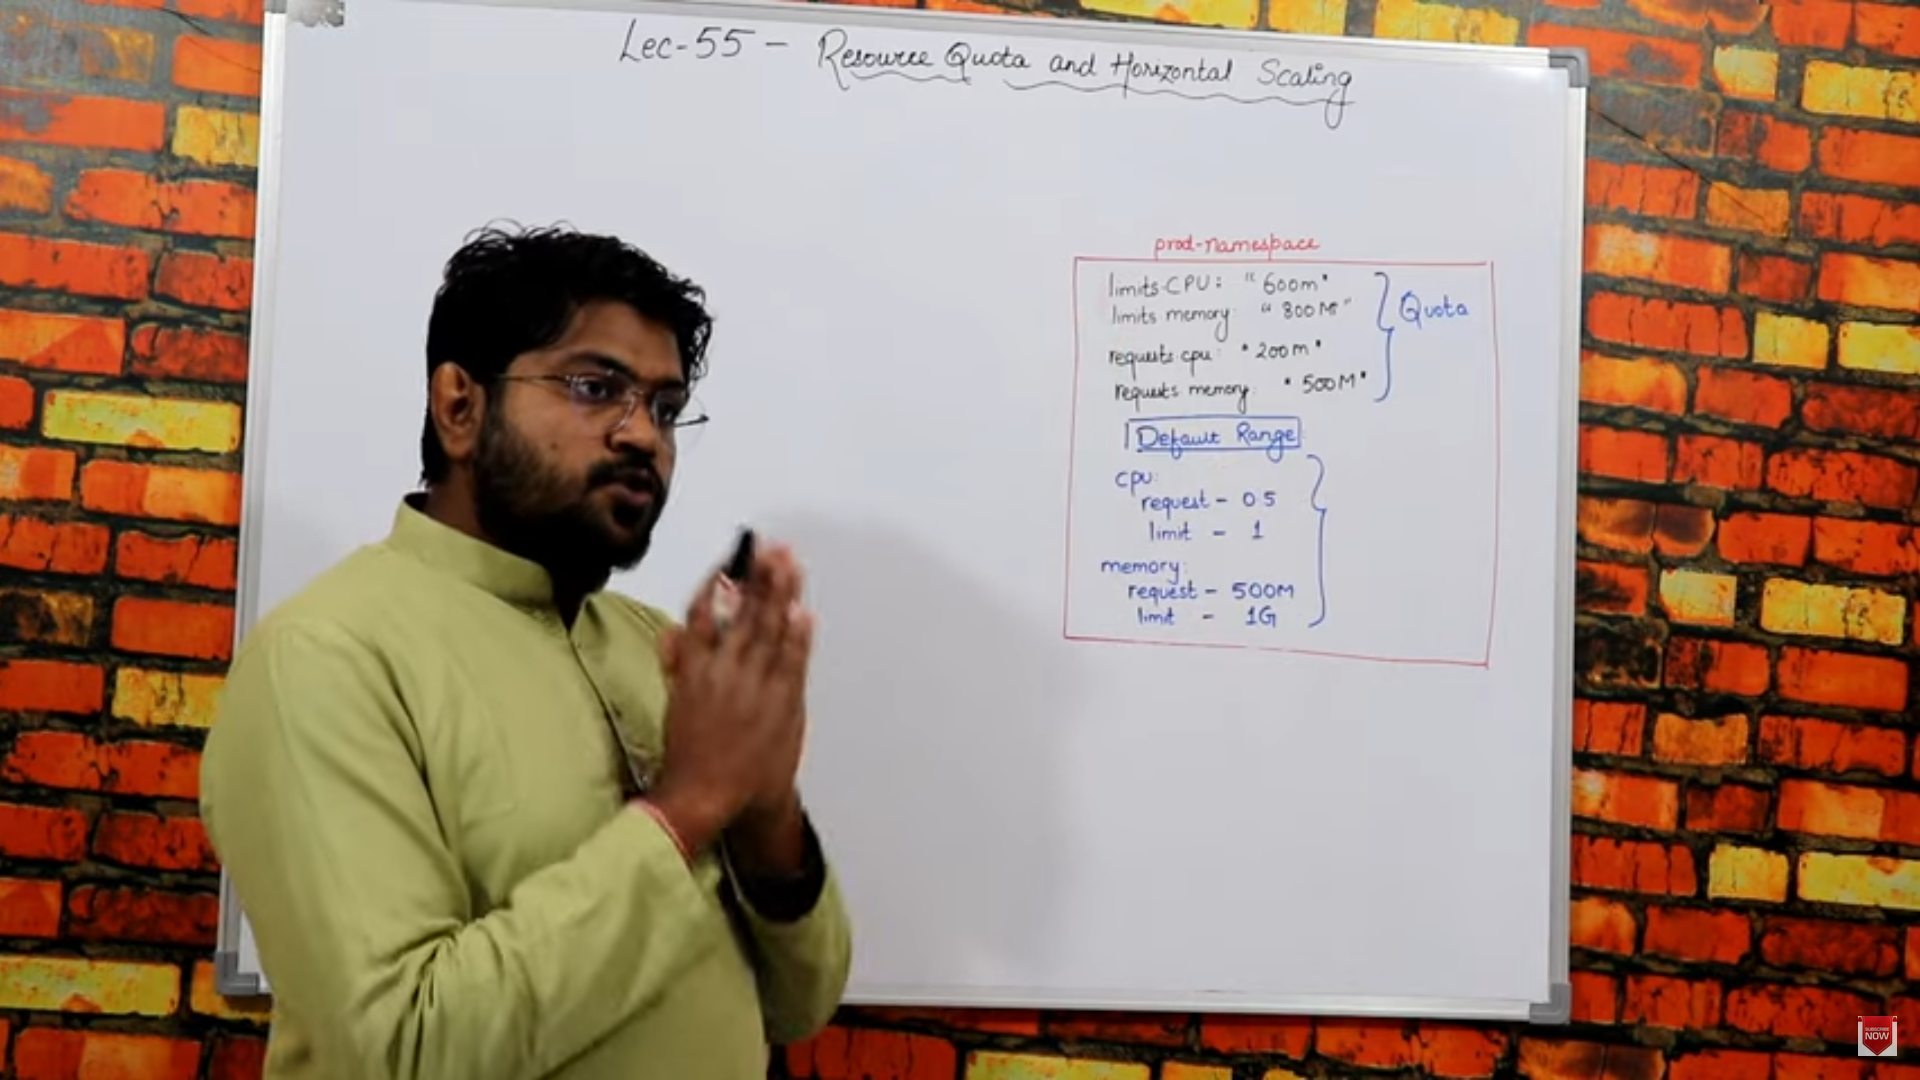 Lec-55 - Resource Quota and Horizontal Scaling
prod-namespace
limits.CPU: "600m"
limits memory: "800M"
Quota
requests cpu: "200m"
requests memory: "500M"
Default Range
cpu:
request - 0.5
limit - 1
memory:
request - 500M
limit - 1G
SUBSCRIBE
NOW